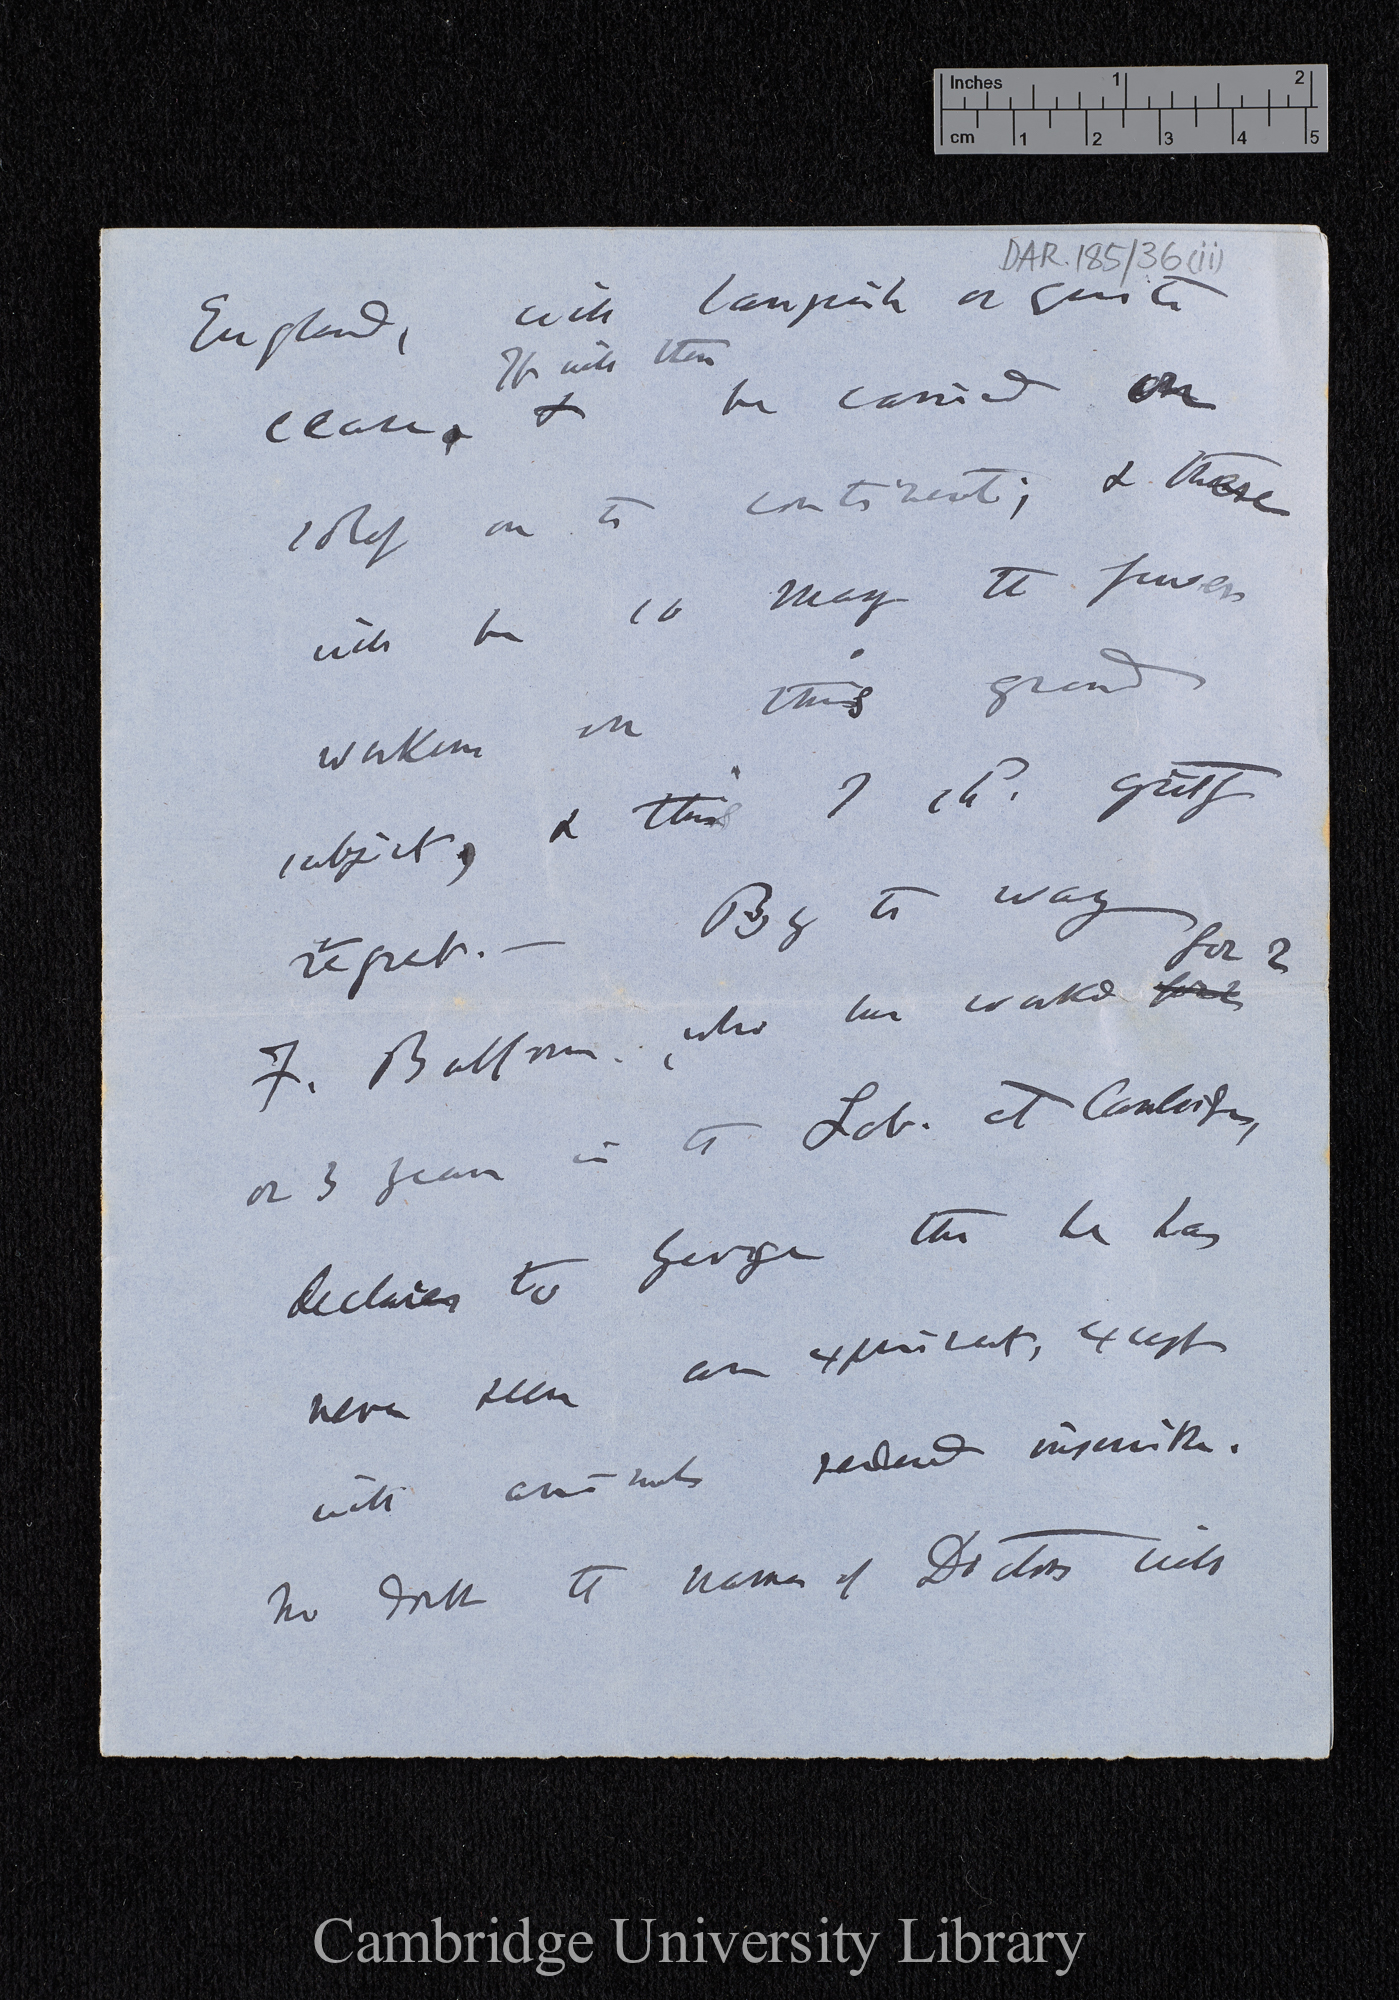 Inches 1 2
cm 1 2 3 4 5
DAR.185/36(ii)
England, will languish or quite
If will then
cease, & be carried on
solely on the continent; & there
will be so many the fewer
workers on this grand
subject, & this I shd. greatly
regret.— By the way
for 2
F. Balfour, who has worked for 2
or 3 years in the Lab. at Cambridge,
declares to George that he has
never seen an experiment, except
with animals rendered insensible.
No doubt the names of Doctors will
Cambridge University Library